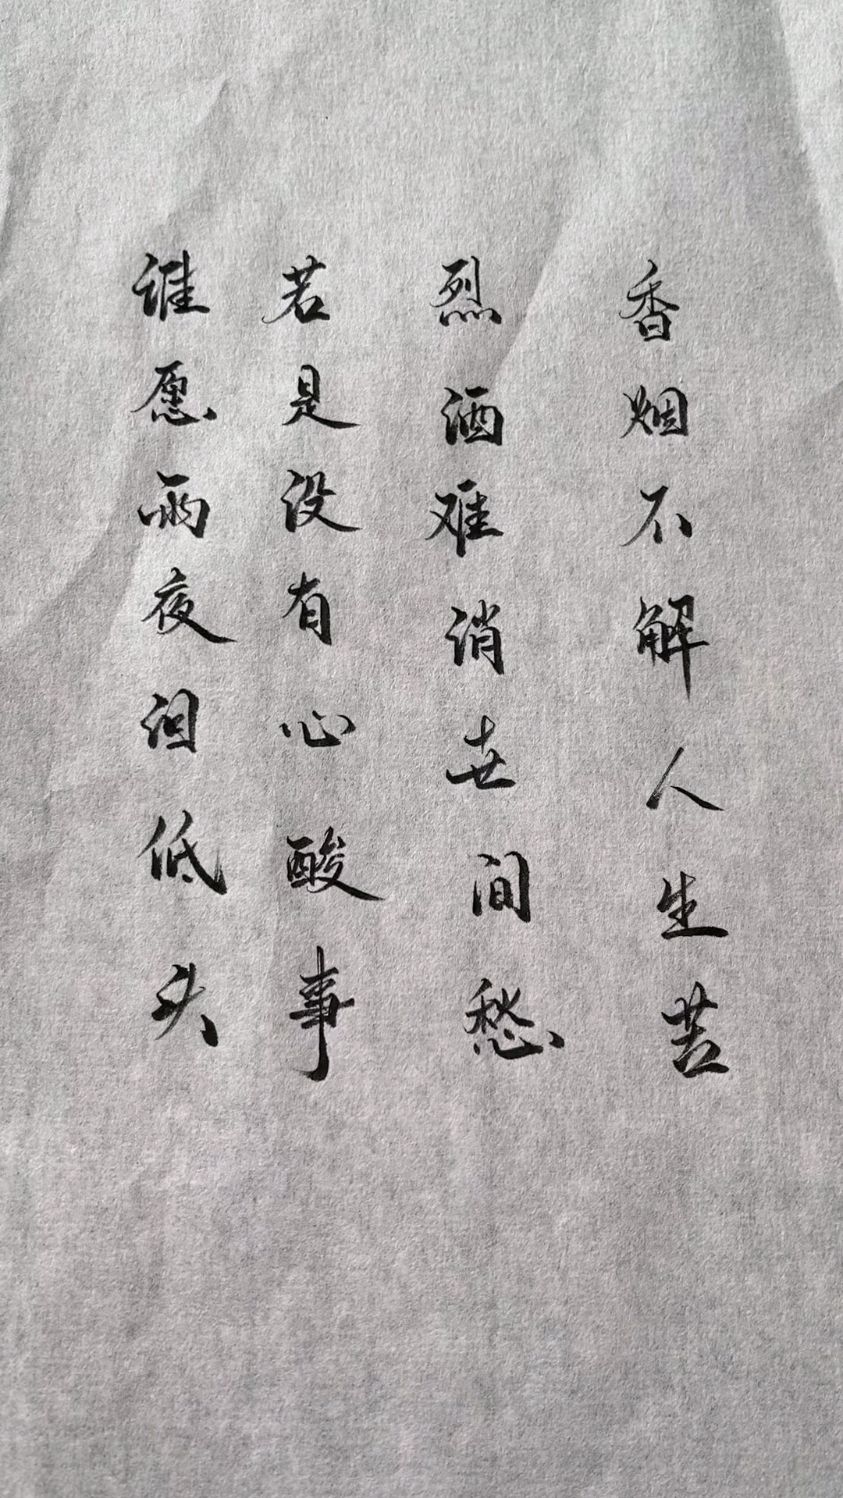 香烟不解人生苦
烈酒难消世间愁
若是没有心酸事
谁愿雨夜泪低头